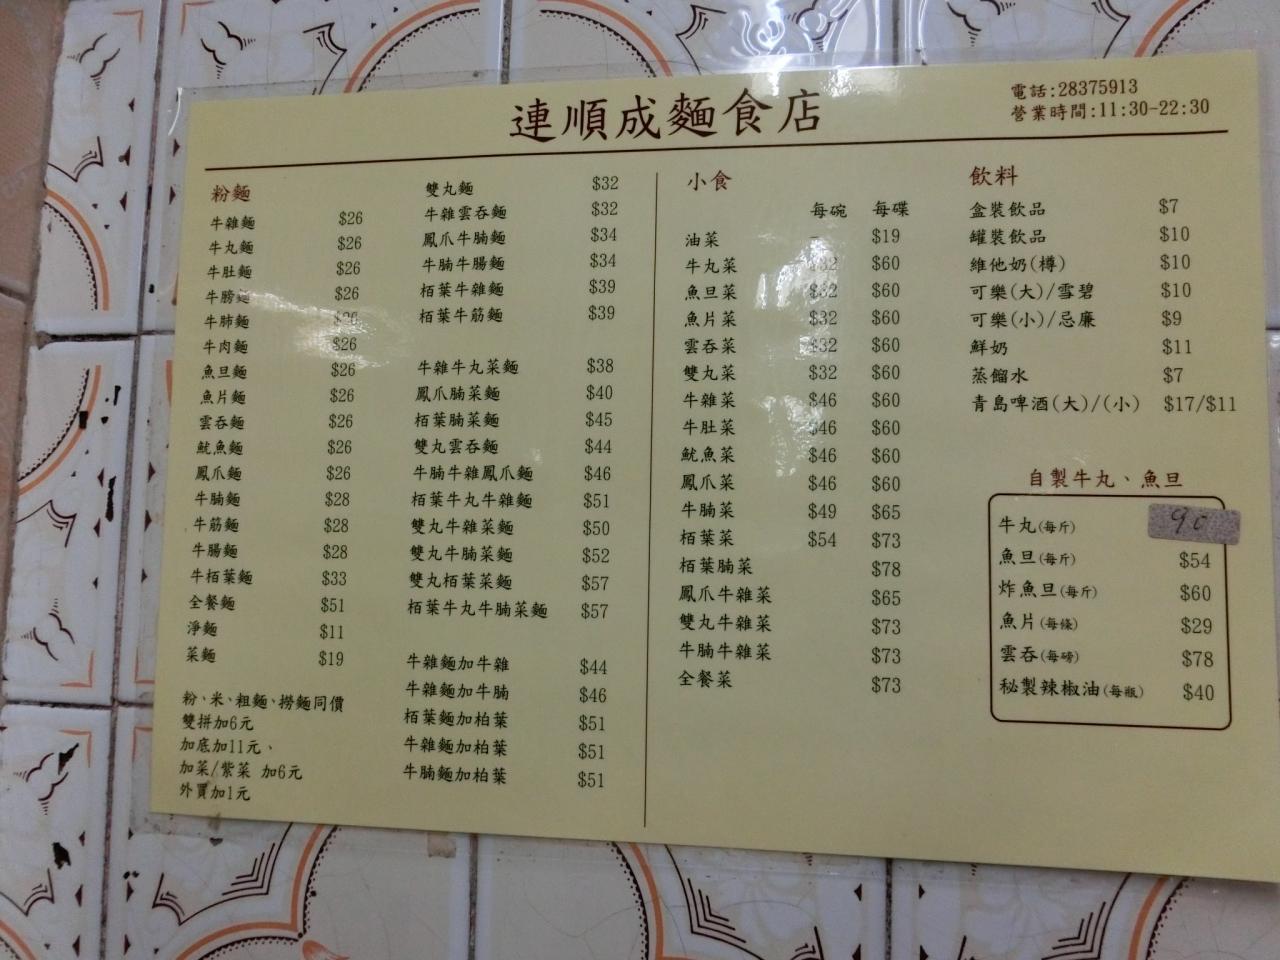 連順成麵食店
電話:28375913
營業時間:11:30-22:30
粉麵
牛雜麵 $26
牛丸麵 $26
牛肚麵 $26
牛膀麵 $26
牛肺麵 $26
牛肉麵 $26
魚旦麵 $26
魚片麵 $26
雲吞麵 $26
魷魚麵 $26
鳳爪麵 $26
牛腩麵 $28
牛筋麵 $28
牛腸麵 $28
牛栢葉麵 $33
全餐麵 $51
淨麵 $11
菜麵 $19
粉、米、粗麵、撈麵同價
雙拼加6元
加底加11元、
加菜/紫菜 加6元
外買加1元
雙丸麵 $32
牛雜雲吞麵 $32
鳳爪牛腩麵 $34
牛腩牛腸麵 $34
栢葉牛雜麵 $39
栢葉牛筋麵 $39
牛雜牛丸菜麵 $38
鳳爪腩菜麵 $40
栢葉腩菜麵 $45
雙丸雲吞麵 $44
牛腩牛雜鳳爪麵 $46
栢葉牛丸牛雜麵 $51
雙丸牛雜菜麵 $50
雙丸牛腩菜麵 $52
雙丸栢葉菜麵 $57
栢葉牛丸牛腩菜麵 $57
牛雜麵加牛雜 $44
牛雜麵加牛腩 $46
栢葉麵加柏葉 $51
牛雜麵加柏葉 $51
牛腩麵加柏葉 $51
小食
每碗 每碟
油菜 - $19
牛丸菜 $32 $60
魚旦菜 $32 $60
魚片菜 $32 $60
雲吞菜 $32 $60
雙丸菜 $32 $60
牛雜菜 $46 $60
牛肚菜 $46 $60
魷魚菜 $46 $60
鳳爪菜 $46 $60
牛腩菜 $49 $65
栢葉菜 $54 $73
栢葉腩菜 $78
鳳爪牛雜菜 $65
雙丸牛雜菜 $73
牛腩牛雜菜 $73
全餐菜 $73
飲料
盒裝飲品 $7
罐裝飲品 $10
維他奶(樽) $10
可樂(大)/雪碧 $10
可樂(小)/忌廉 $9
鮮奶 $11
蒸餾水 $7
青島啤酒(大)/(小) $17/$11
自製牛丸、魚旦
牛丸(每斤) 90
魚旦(每斤) $54
炸魚旦(每斤) $60
魚片(每條) $29
雲吞(每磅) $78
秘製辣椒油(每瓶) $40